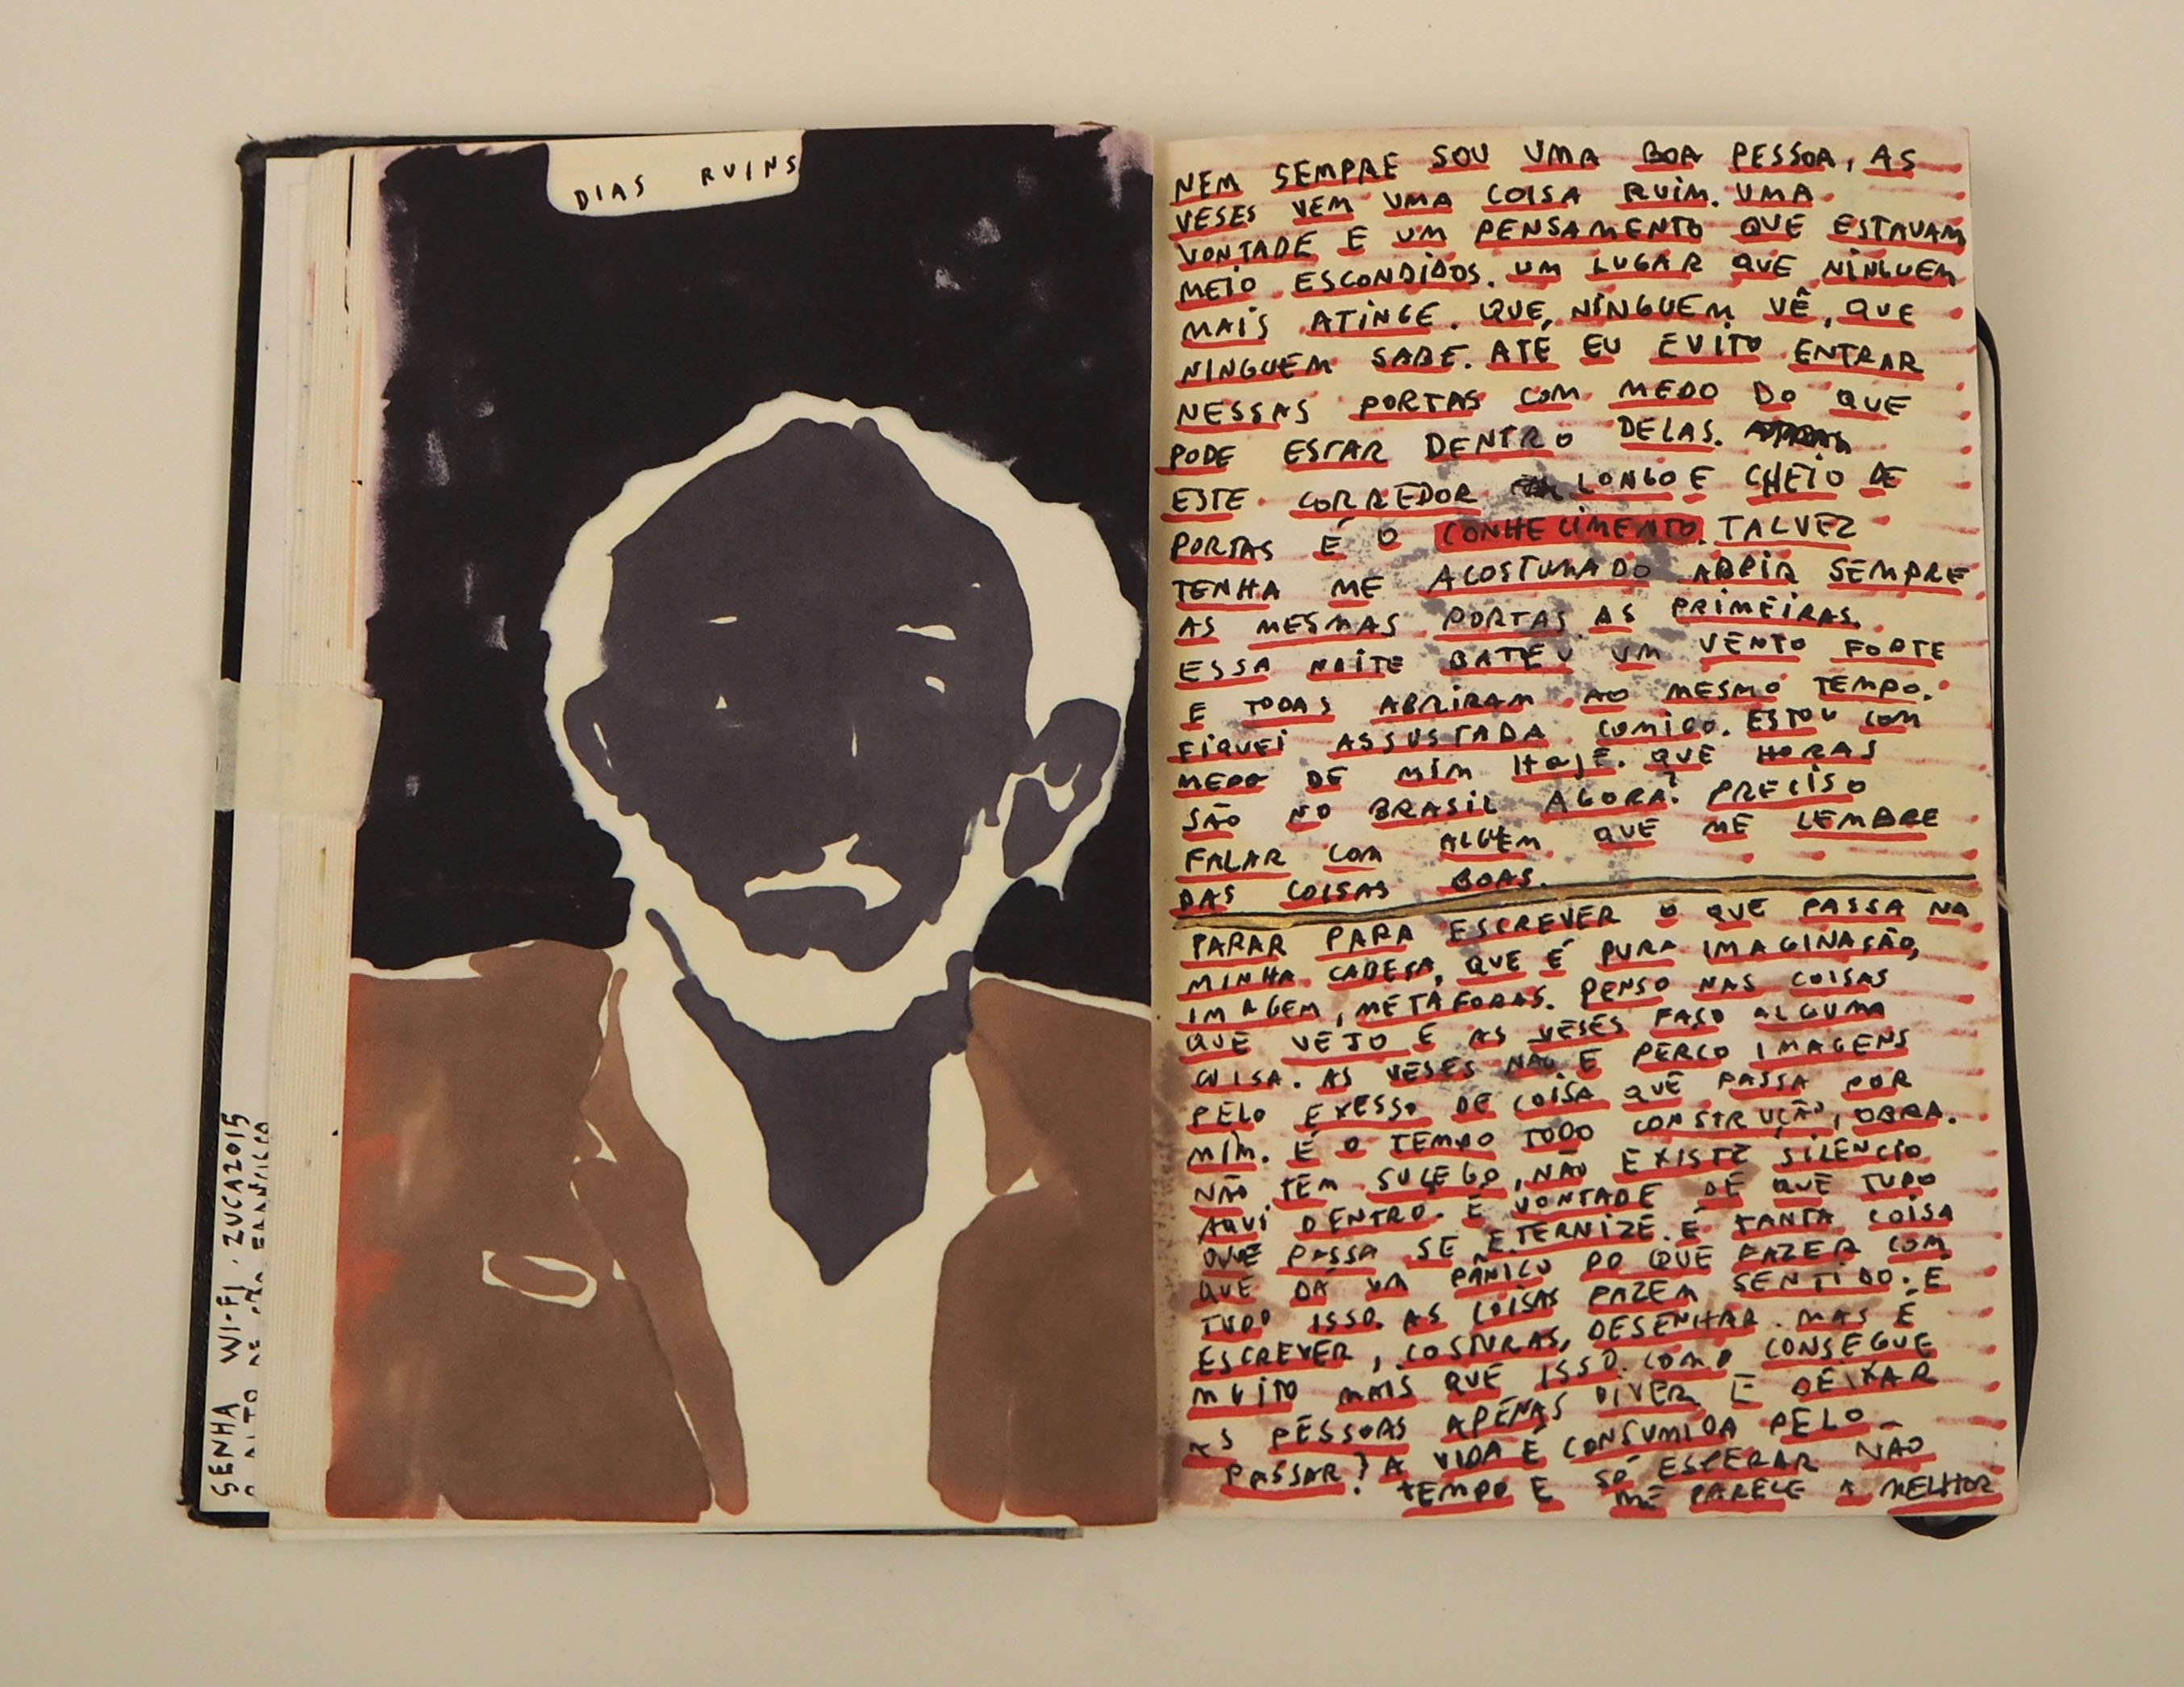 DIAS RUINS
SENHA WI-FI. ZUCA2015
NEM SEMPRE SOU UMA BOA PESSOA, AS
VESES VEM UMA COISA RUIM. UMA
VONTADE E UM PENSAMENTO QUE ESTAVAM
MEIO ESCONDIDOS. UM LUGAR QUE NINGUEM
MAIS ATINGE. QUE, NINGUEM VÊ, QUE
NINGUEM SABE. ATÉ EU EVITO ENTRAR
NESSAS PORTAS COM MEDO DO QUE
PODE ESTAR DENTRO DELAS.
ESTE CORREDOR LONGO E CHEIO DE
PORTAS É O CONHECIMENTO. TALVEZ
TENHA ME ACOSTUMADO ABRIR SEMPRE
AS MESMAS PORTAS. AS PRIMEIRAS.
ESSA NOITE BATEU UM VENTO FORTE
E TODAS ABRIRAM AO MESMO TEMPO.
FIQUEI ASSUSTADA COMIGO. ESTOU COM
MEDO DE MIM HOJE. QUE HORAS
SÃO NO BRASIL AGORA? PRECISO
FALAR COM ALGEM QUE ME LEMBRE
DAS COISAS BOAS.
PARAR PARA ESCREVER O QUE PASSA NA
MINHA CABEÇA, QUE É PURA IMAGINAÇÃO,
IMAGEM, METÁFORAS. PENSO NAS COISAS
QUE VEJO E AS VESES FASO ALGUMA
COISA. AS VESES NÃO. E PERCO IMAGENS
PELO EXESSO DE COISA QUE PASSA POR
MIM. É O TEMPO TODO CONSTRUÇÃO, OBRA.
NÃO TEM SUCEGO, NÃO EXISTE SILÊNCIO
AQUI DENTRO. É VONTADE DE QUE TUDO
QUE PASSA SE ETERNIZE. É TANTA COISA
QUE DÁ UM PÂNICO DO QUE FAZER COM
TUDO ISSO. AS COISAS FAZEM SENTIDO. E
ESCREVER, COSTURAS, DESENHAR. MAS É
MUITO MAIS QUE ISSO. COMO CONSEGUE
AS PESSOAS APENAS VIVER E DEIXAR
PASSAR? A VIDA É CONSUMIDA PELO
TEMPO E SÓ ESPERAR NÃO
ME PARECE A MELHOR